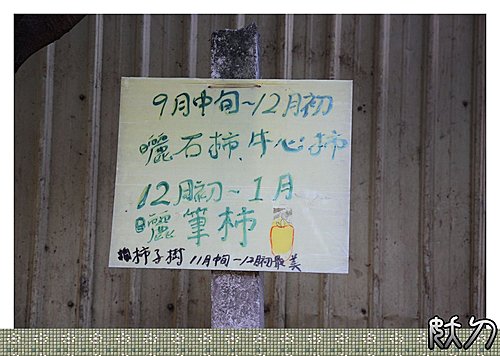 9月中旬~12月初
曬石柿、牛心柿
12月初~1月
曬筆柿
柿子樹 11月中旬-12月初最美